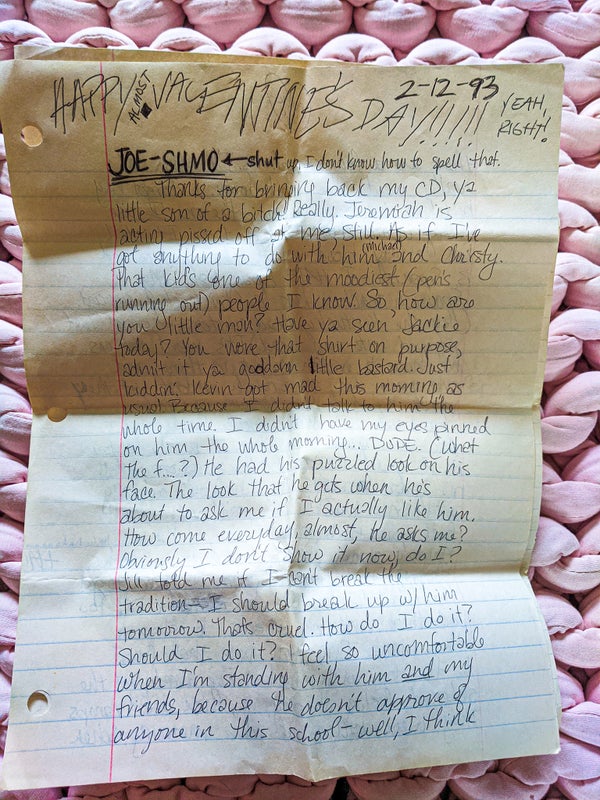 HAPPY ALMOST VALENTINE'S DAY!!!!!! 2-12-93 YEAH, RIGHT!
JOE-SHMO ← shut up, I don't know how to spell that.
Thanks for bringing back my CD, ya
little son of a bitch! Really. Jeremiah is
acting pissed off at me, still. As if I've
got anything to do with him (michael) and Christy.
That kid's one of the moodiest (pen's
running out) people I know. So, how are
you little man? Have ya seen Jackie
today? You wore that shirt on purpose,
admit it ya goddamn little bastard. Just
kiddin'. Kevin got mad this morning as
usual. Because I didn't talk to him the
whole time. I didn't have my eyes pinned
on him the whole morning... DUDE. (what
the f...?) He had his puzzled look on his
face. The look that he gets when he's
about to ask me if I actually like him.
How come everyday, almost, he asks me?
Obviously I don't show it now, do I?
Jill told me if I can't break the
tradition - I should break up w/ him
tomorrow. That's cruel. How do I do it?
Should I do it? I feel so uncomfortable
when I'm standing with him and my
friends, because he doesn't approve of
anyone in this school - well, I think